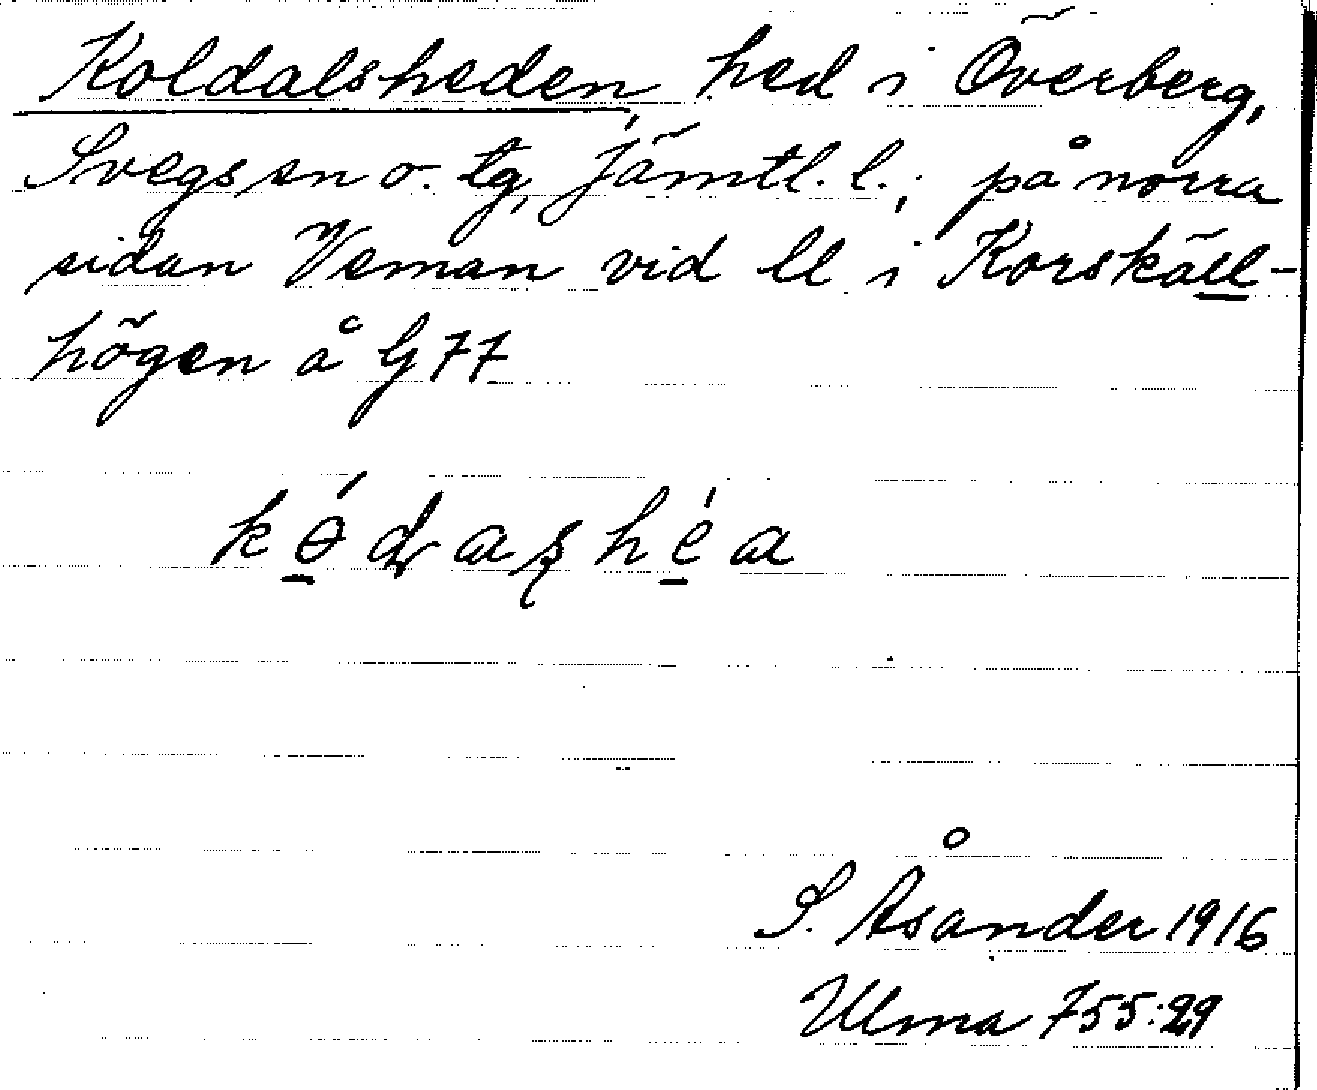 Koldalsheden, hed i Överberg,
Svegs sn o. tg, Jämtl. l.; på norra
sidan Veman vid ll i Korskäll-
högen å G77
kǿdaʂhéa
S. Åsander 1916
Ulma 755:29